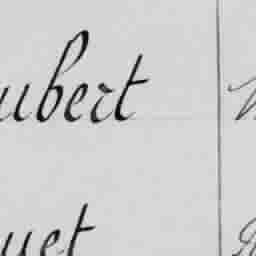 ubert
uet